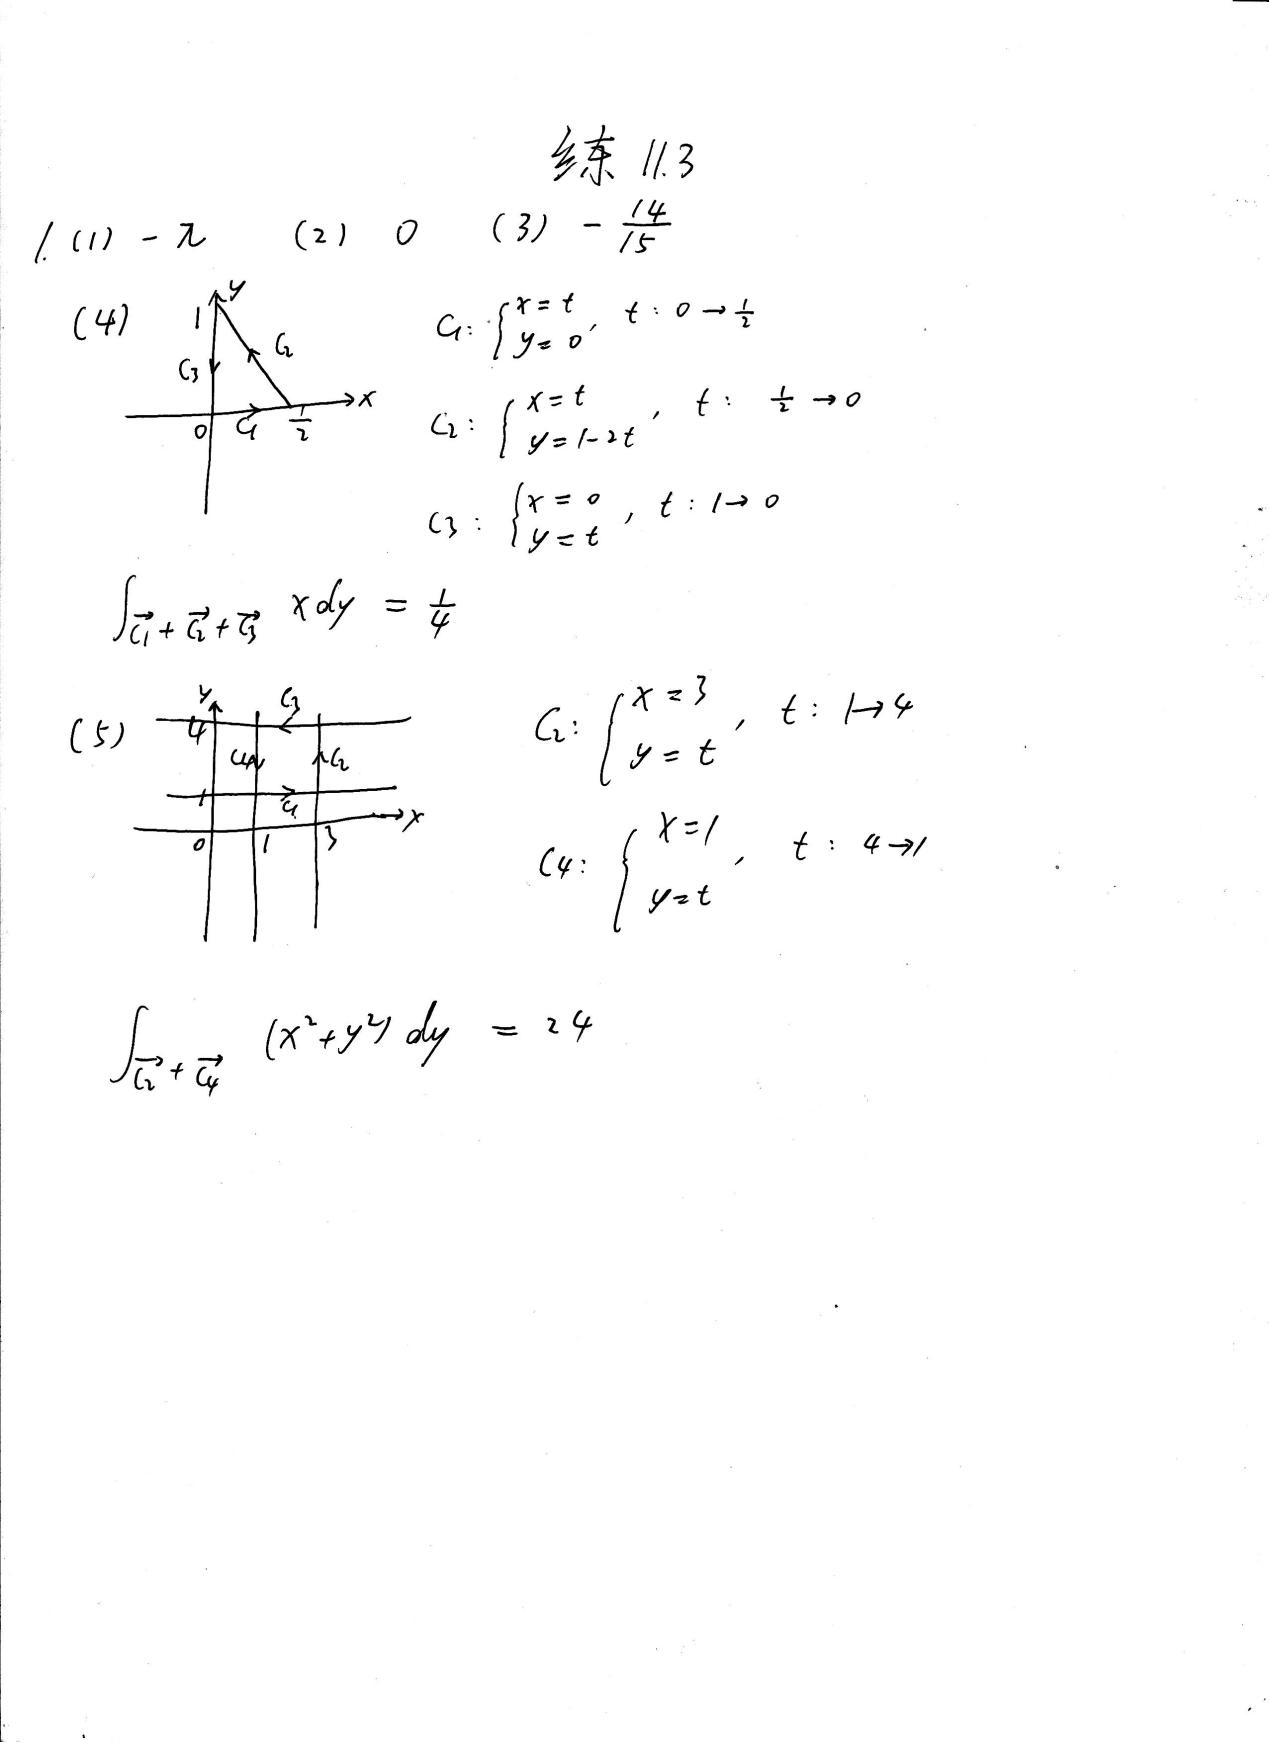 练 11.3
1. (1) -π (2) 0 (3) -14/15
(4) y 1 C3 C2 0 C1 1/2 x
C1: { x=t, y=0, t: 0→1/2
C2: { x=t, y=1-2t, t: 1/2→0
C3: { x=0, y=t, t: 1→0
∫C1+C2+C3 xdy = 1/4
(5) y 4 C3 C4 C2 1 C1 0 1 3 x
C2: { x=3, y=t, t: 1→4
C4: { x=1, y=t, t: 4→1
∫C2+C4 (x²+y²) dy = 24